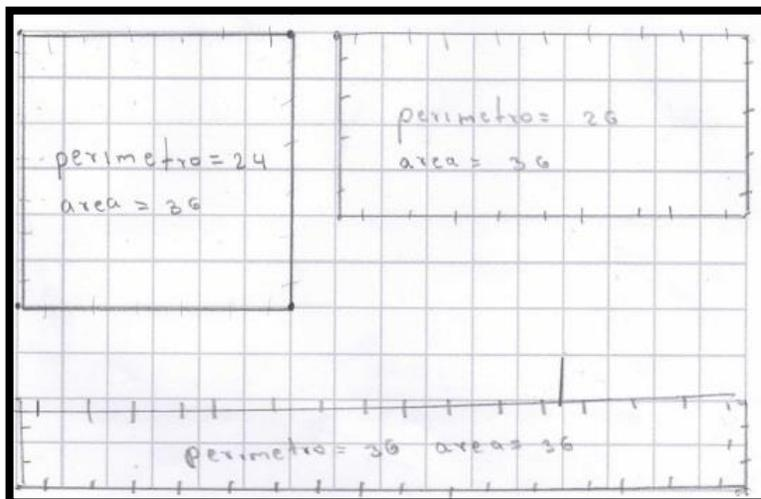 perimetro = 24
area = 36
perimetro = 26
area = 36
perimetro = 36 area = 36